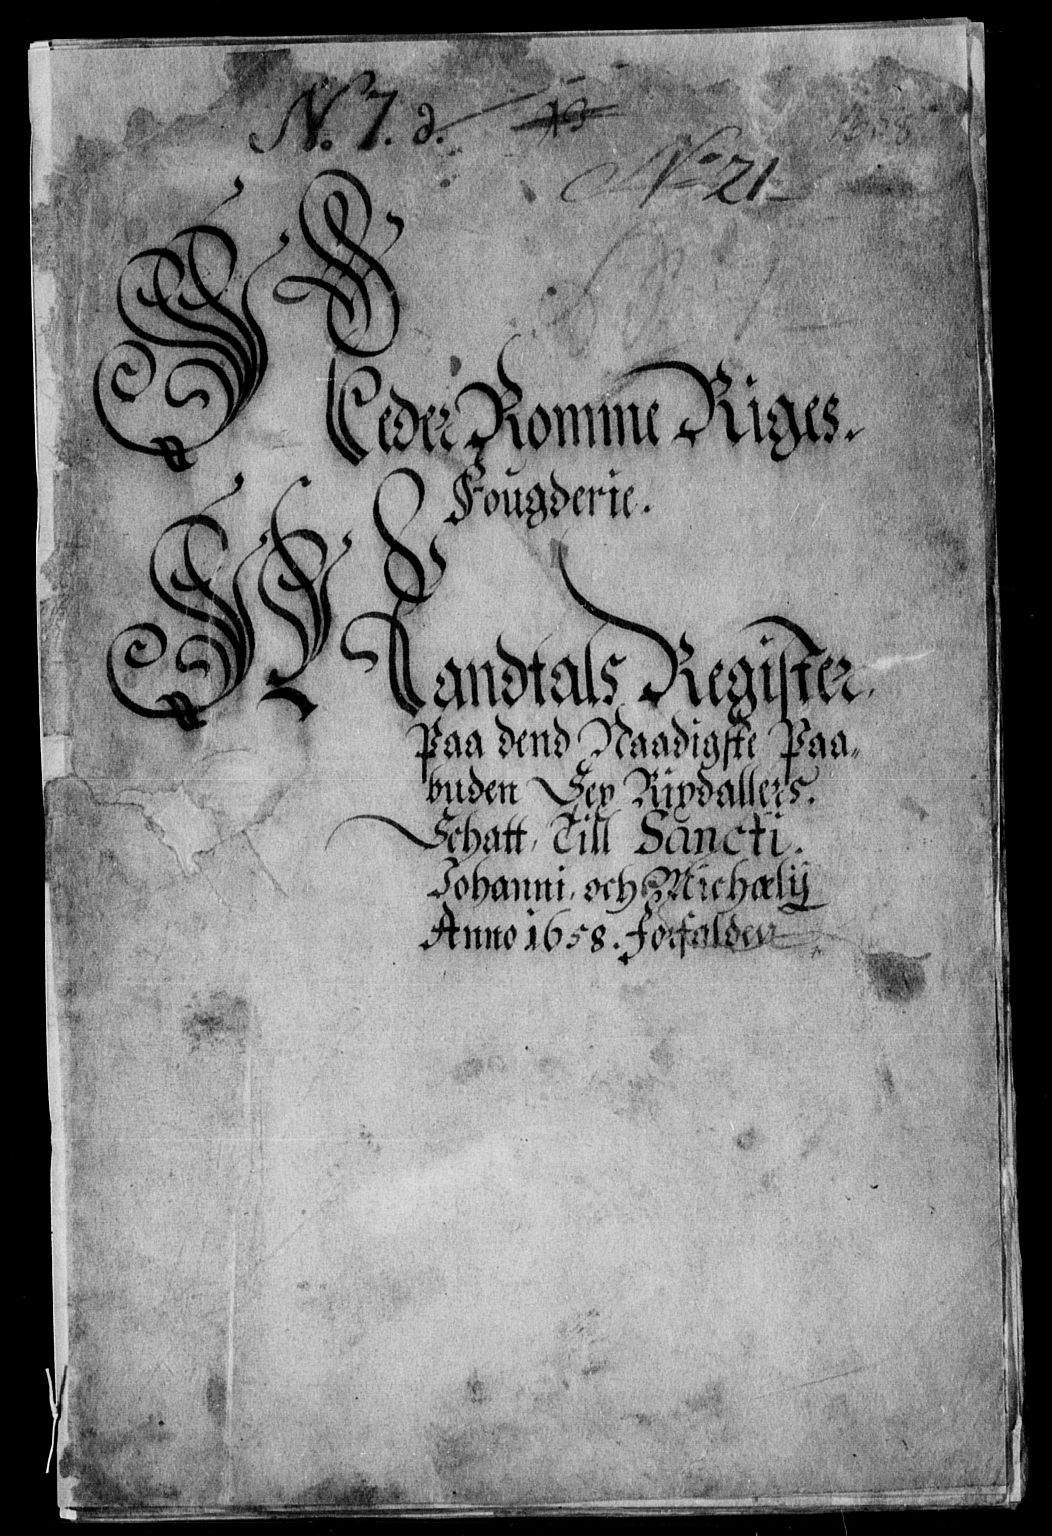 N. 7. d.
1658
No 21
Neder Romme Riges.
Fougderie.
Mandtals Register
Paa dend Naadigste Paa-
buden Sex Rixdallers.
Schatt, Till Sancti.
Johanni, och Michælij
Anno 1658. Forfalden